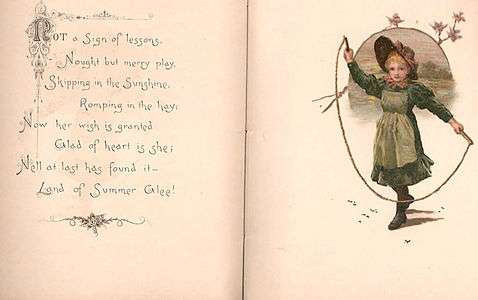 Not a Sign of lessons,
Nought but merry play,
Skipping in the Sunshine,
Romping in the hay;
Now her wish is granted
Glad of heart is she;
Nell at last has found it—
Land of Summer Glee!